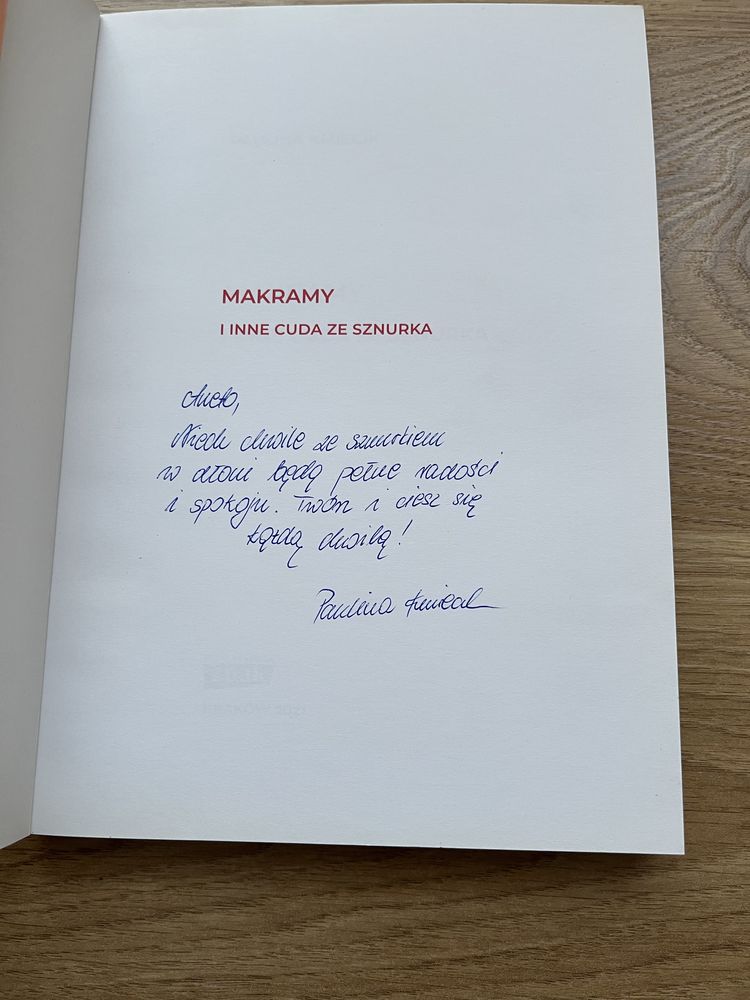 MAKRAMY
I INNE CUDA ZE SZNURKA
Aneto,
Niech chwile ze sznurkiem
w dłoni będą pełne radości
i spokoju. Twórz i ciesz się
każdą chwilą!
Paulina Kmiecik
KRAKÓW 2021